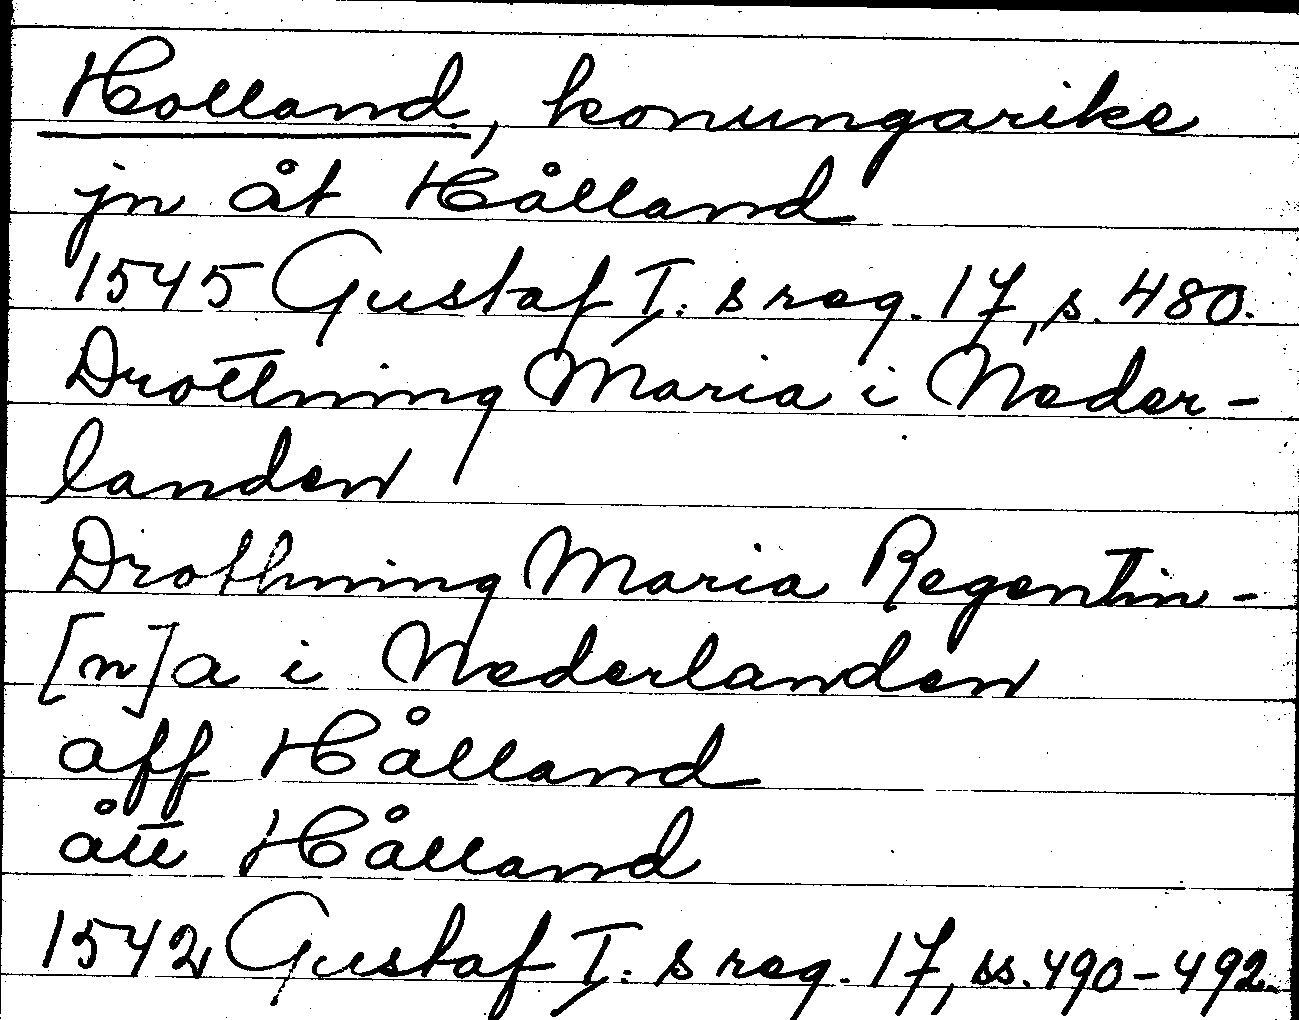 Holland, konungarike
jn åt Hålland
1545 Gustaf I:s reg. 17, s. 480.
Drottning Maria i Neder-
landen
Drothning Maria Regentin-
[n]a i Nederlanden
aff Hålland
ått Hålland
1542 Gustaf I:s reg. 17, ss. 490-492.